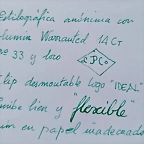 Estilográfica anónima con
plumín Warranted 14 CT
33 y loro
PCo
clip desmontable logo "IDEAL"
escribe bien y "flexible"
en papel maderado